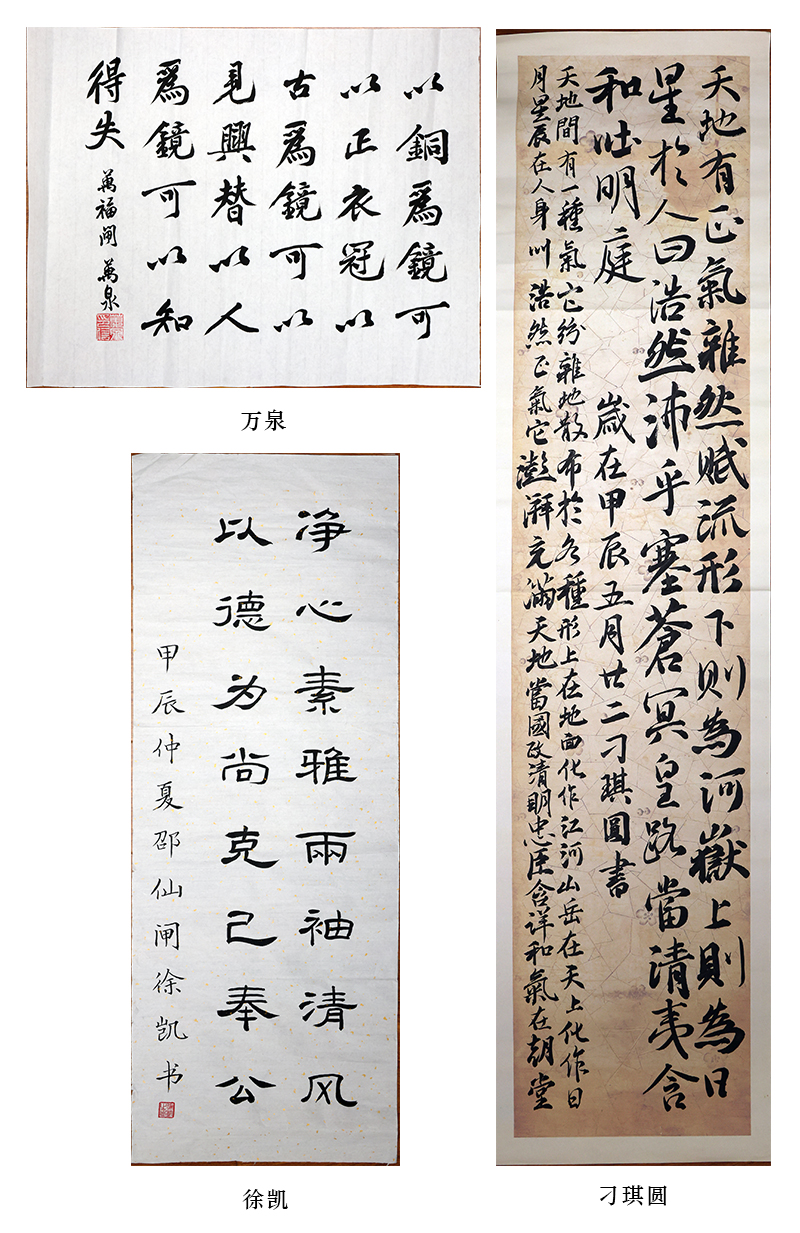 以銅爲鏡可
以正衣冠以
古爲鏡可以
見興替以人
爲鏡可以知
得失
萬福闸 萬泉
万泉
净心素雅兩袖清风
以德为尚克己奉公
甲辰仲夏邵仙闸徐凯书
徐凯
天地有正氣雜然賦流形下則為河嶽上則為日
星於人曰浩然沛乎塞蒼冥皇路當清夷含
和吐明庭 歲在甲辰五月廿二刁琪圓書
天地間有一種氣它紛雜地散布於各種形上在地面化作江河山岳在天上化作日
月星辰在人身叫浩然正氣它澎湃充滿天地當國政清明忠臣含详和氣在朝堂
刁琪圆